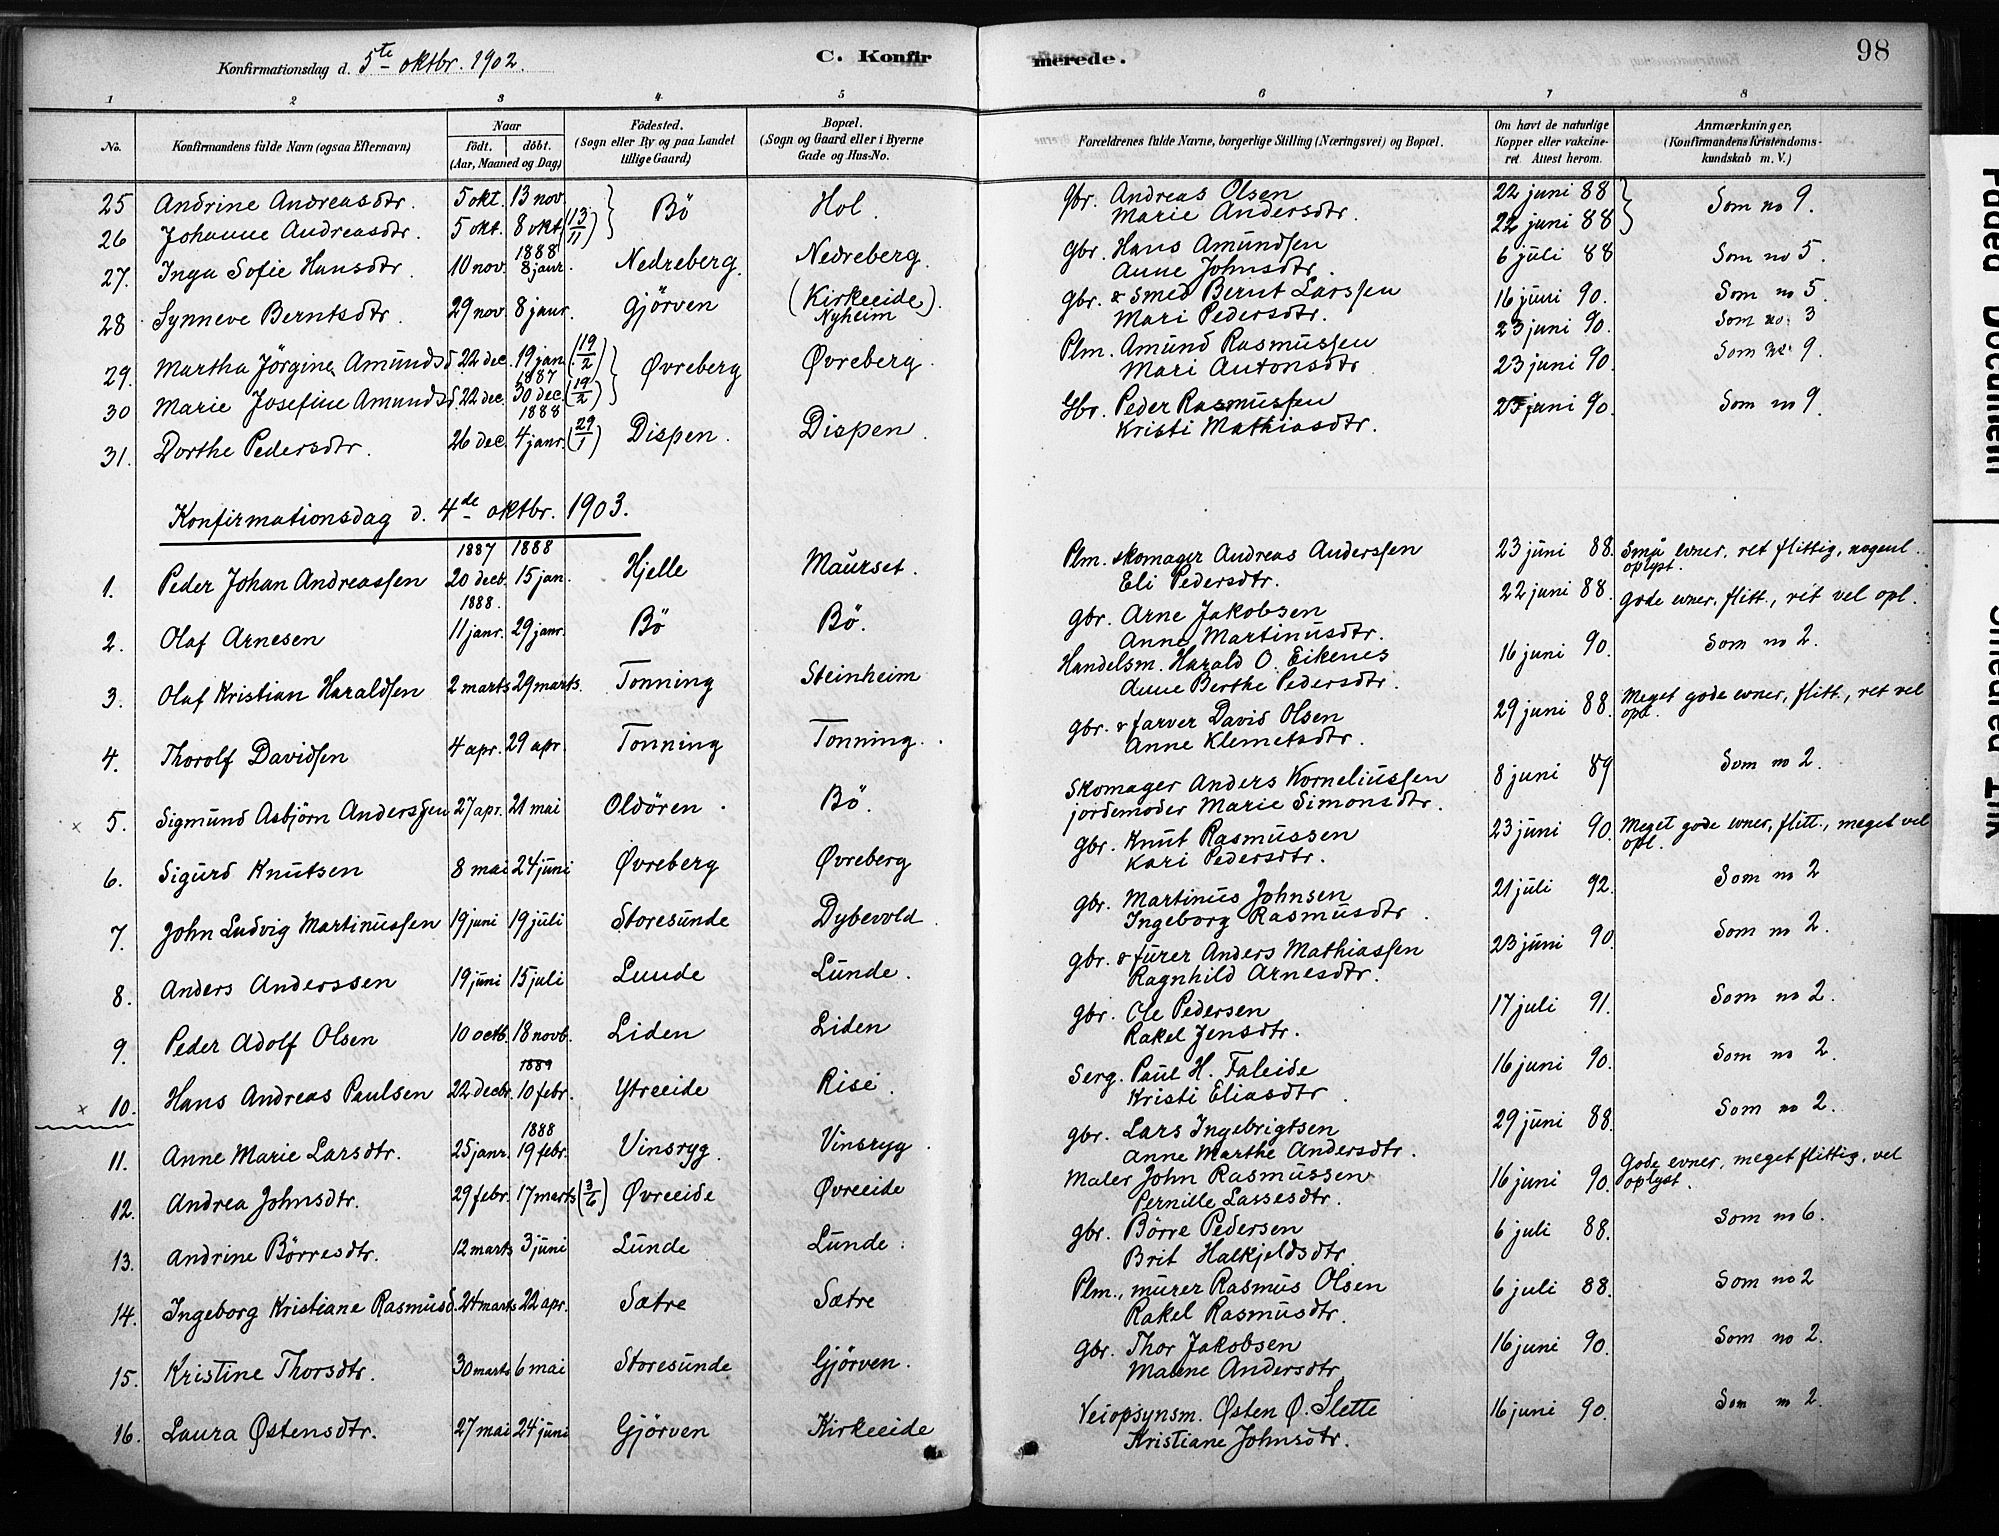 Konfirmationsdag d. 5te oktbr. 1902.
C. Konfirmerede.
98
1 2 3 4 5 6 7 8
No. Konfirmandens fulde Navn (ogsaa Efternavn) Naar födt. döbt. (Aar, Maaned og Dag) Födested. (Sogn eller By og paa Landet tillige Gaard) Bopæl. (Sogn og Gaard eller i Byerne Gade og Hus-No. Forældrenes fulde Navne, borgerlige Stilling (Næringsvei) og Bopæl. Om havt de naturlige Kopper eller vakcineret. Attest herom. Anmærkninger. (Konfirmandens Kristendomskundskab m. V.)
25 Andrine Andreasdtr. 5 okt. 13 nov. Bö Hol. gbr. Andreas Olsen Marie Andersdtr. 22 juni 88 Som no 9.
26 Johanne Andreasdtr. 5 okt. 8 okt. (13/11) 22 juni 88
27. Inga Sofie Hansdtr. 10 nov. 1888 8 janr. Nedreberg. Nedreberg. gbr. Hans Amundsen Anne Johnsdtr. 6 juli 88 Som no 5.
28 Synneve Berntsdtr. 29 nov. 8 janr. Gjörven (Kirkeeide). Nyheim gbr. & smed Bernt Larssen Mari Pedersdtr. 16 juni 90. Som no 5.
29. Martha Jörgine Amundsd. 22 dec. 19 jan. (19/2) Øvreberg Øvreberg. Plm. Amund Rasmussen Mari Antonsdtr. 23 juni 90. Som no 3
30 Marie Josefine Amundsd. 22 dec. 1887 30 dec. (19/2) 23 juni 90. Som no 9.
31. Dorthe Pedersdtr. 26 dec. 1888 4 janr. (29/1) Dispen. Dispen. Gbr. Peder Rasmussen Kristi Mathiasdtr. 23 juni 90. Som no 9.
Konfirmationsdag d. 4de oktbr. 1903.
1. Peder Johan Andreassen 1887 20 decb. 1888 15 jan. Hjelle Maurset. Plm. skomager Andreas Anderssen Eli Pedersdtr. 23 juni 88. Små evner, ret flittig, nogenl. oplyst.
2. Olaf Arnesen 1888. 11 janr. 29 janr. Bö Bö. gbr. Arne Jakobsen Anne Martinusdtr. 22 juni 88. Gode evner, flitt., ret vel opl.
3. Olaf Kristian Haraldsen 2 marts 29 marts. Tonning Steinheim Handelsm. Harald O. Eikenes Anne Berthe Pedersdtr. 16 juni 90. Som no 2.
4. Thorolf Davidsen 4 apr. 29 apr. Tonning Tonning. gbr. & farver David Olsen Anne Klemetsdtr. 29 juni 88. Meget gode evner, flitt., ret vel opl.
x 5. Sigmund Asbjörn Anderssen 27 apr. 21 mai Oldören. Bö. Skomager Anders Korneliussen jordemoder Marie Simonsdtr. 8 juni 89 Som no 2.
6. Sigurd Knutsen 8 mai 24 juni Øvreberg Øvreberg gbr. Knut Rasmussen Kari Pedersdtr. 23 juni 90. Meget gode evner, flitt., meget vel opl.
7. John Ludvig Martinussen 19 juni 19 juli Storesunde Dybevold. gbr. Martinus Johnsen Ingeborg Rasmusdtr. 21 juli 92. Som no 2
8. Anders Anderssen 19 juni 15 juli Lunde Lunde. gbr. & furer Anders Mathiassen Ragnhild Arnesdtr. 23 juni 90. Som no 2.
9. Peder Adolf Olsen 10 octb. 18 novb. Liden Liden gbr. Ole Pedersen Rakel Jensdtr. 17 juli 91. Som no 2.
x 10. Hans Andreas Paulsen 22 decbr. 1889 10 febr. Ytreeide Rise. Serg. Paul H. Faleide Kristi Eliasdtr. 16 juni 90. Som no 2.
11. Anne Marie Larsdtr. 25 janr. 1888 19 febr. Vinsryg. Vinsryg. gbr. Lars Ingebrigtsen Anne Marthe Andersdtr. 29 juni 88. Som no 2.
12. Andrea Johnsdtr. 29 febr. 17 marts (3/6) Øvreeide Øvreeide Maler John Rasmussen Pernille Lassesdtr. 16 juni 90. Gode evner, meget flittig, vel oplyst.
13. Andrine Börresdtr. 12 marts 3 juni Lunde Lunde. gbr. Börre Pedersen Brit Halkjeldsdtr. 6 juli 88. Som no 6.
14. Ingeborg Kristiane Rasmusd. 24 marts 22 apr. Sætre Sætre Plm., murer Rasmus Olsen Rakel Rasmusdtr. 6 juli 88. Som no 2
15. Kristine Thorsdtr. 30 marts 6 mai Storesunde Gjörven. gbr. Thor Jakobsen Malene Andersdtr. 16 juni 90. Som no 2.
16. Laura Østensdtr. 27 mai 24 juni Gjörven Kirkeeide Veiopsynsm. Østen Ø. Slette Kristiane Johnsdtr. 16 juni 90. Som no 2.
Faded Document
Smeared Ink